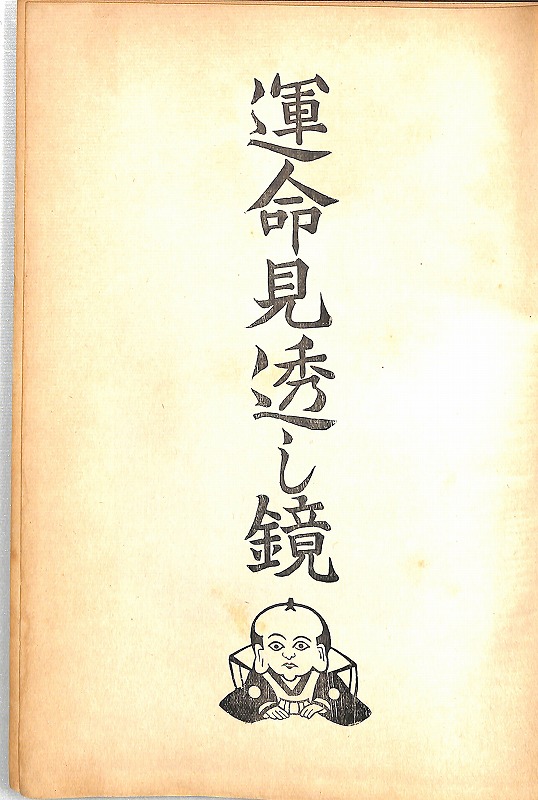 運命見透し鏡